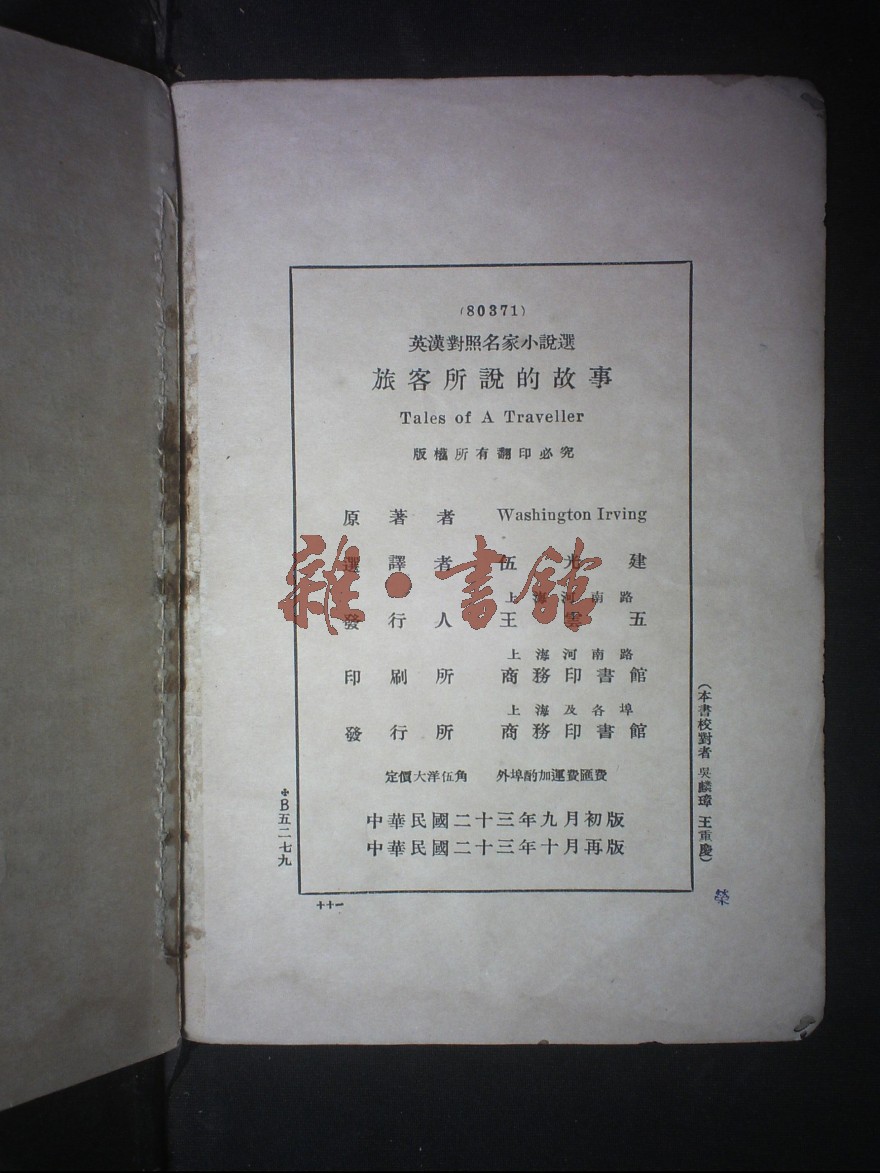 (80371)
英漢對照名家小說選
旅客所說的故事
Tales of A Traveller
版權所有翻印必究
原著者 Washington Irving
選譯者 伍光建
上海河南路
發行人 王雲五
上海河南路
印刷所 商務印書館
上海及各埠
發行所 商務印書館
定價大洋伍角 外埠酌加運費匯費
中華民國二十三年九月初版
中華民國二十三年十月再版
(本書校對者 吳麟璋 王重慶)
B五二七九
十十一
榮
雜·書館